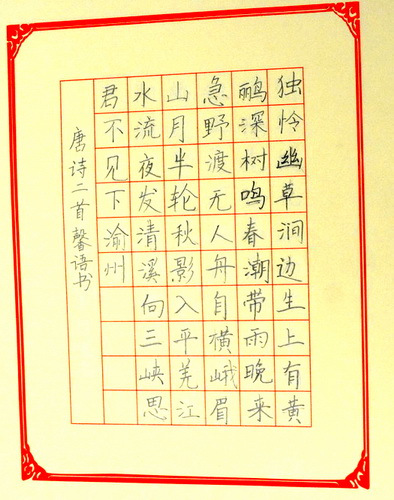 独怜幽草涧边生上有黄
鹂深树鸣春潮带雨晚来
急野渡无人舟自横峨眉
山月半轮秋影入平羌江
水流夜发清溪向三峡思
君不见下渝州
唐诗二首馨语书